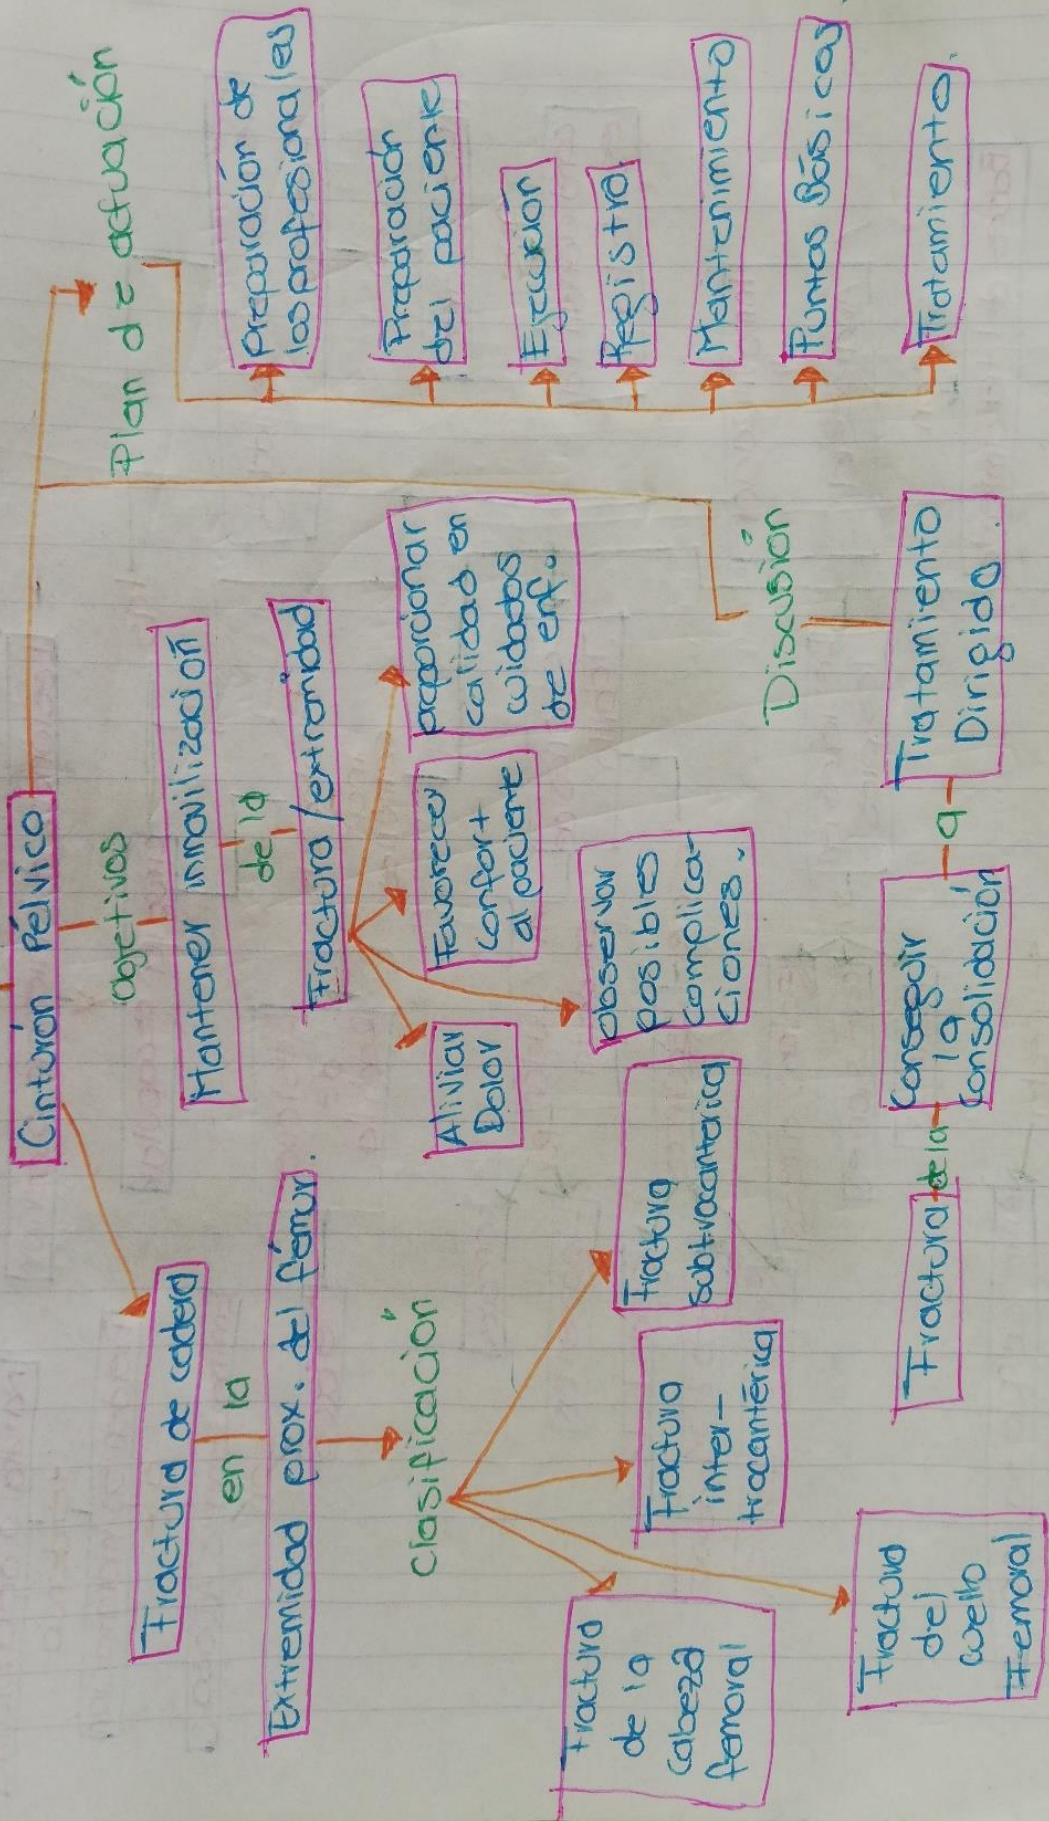 Cinturón Pélvico
Fractura de cadera
en la
Extremidad prox. del fémur.
Clasificación
Fractura
de la
Cabeza
femoral
Fractura
del
cuello
Femoral
Fractura
inter-
trocantérica
Fractura
subtrocanterica
Objetivos
Mantener inmovilización
de la
Fractura/extremidad
Aliviar
Dolor
observar
posibles
complica-
ciones.
Favorecer
Confort
al paciente
proporcionar
calidad en
cuidados
de enf.
Plan de actuación
preparación de
los profesionales
Preparación
del paciente
Ejecución
Registro
Mantenimiento
Puntos Básicos
Tratamiento.
Discusión
Tratamiento
Dirigido.
a
Conseguir
la
Consolidación
de la
Fractura